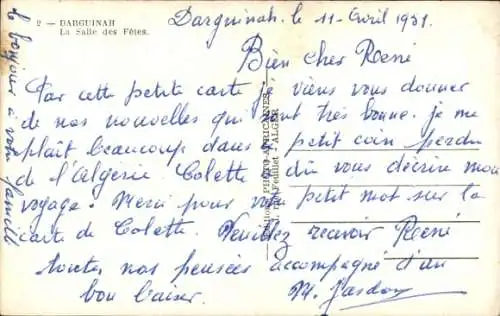 2 — DARGUINAH
La Salle des Fêtes.
Darguinah. le 11- Avril 1951.
Bien cher René
Par cette petite carte je viens vous donner
de nos nouvelles qui sont très bonne. je me
plait beaucoup dans ce petit coin perdu
de l'Algérie Colette a dû vous décrire mon
voyage. Merci pour votre petit mot sur la
carte de Colette. Veuillez recevoir René
toutes nos pensées accompagné d'un
bon baiser.
le bonjour à votre famille